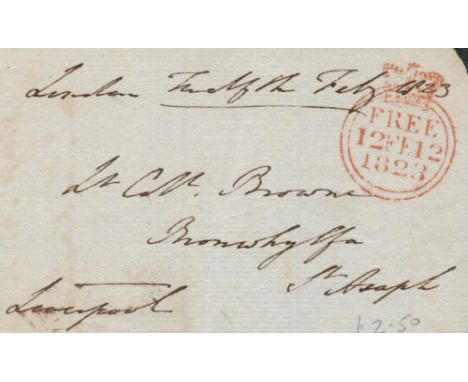 London Twelfth Feby 1823
FREE
12 FE 12
1823
Lt Coll. Browne
Bronwhylfa
St. Asaph
Liverpool
£2-50